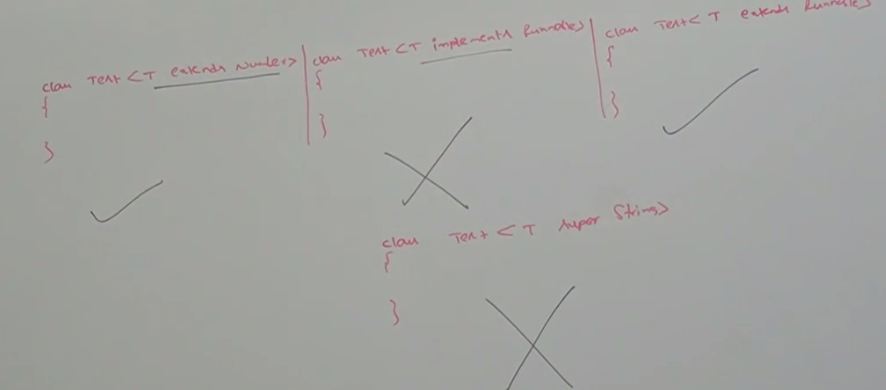 class Test <T extends Number>
{
}
class Test <T implements Runnable>
{
}
class Test <T extends Runnable>
{
}
class Test <T super String>
{
}